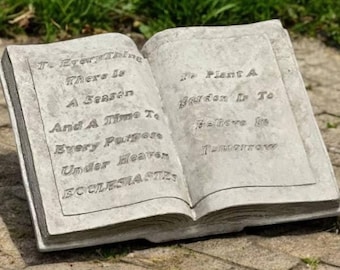 To Everything
There Is
A Season
And A Time To
Every Purpose
Under Heaven
ECCLESIASTES
To Plant A
Garden Is To
Believe In
Tomorrow